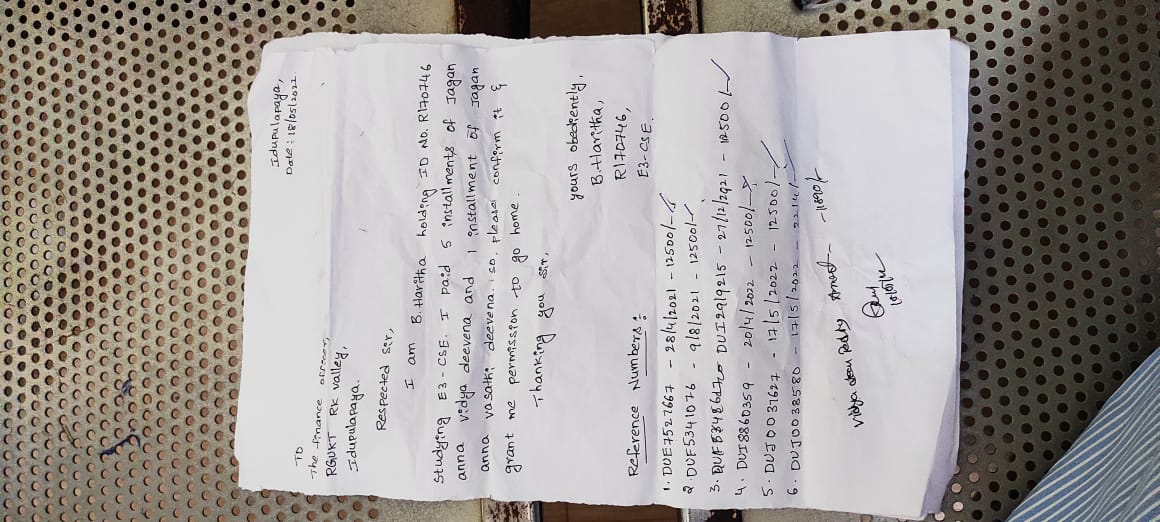 Idupulapaya,
Date : 18/05/2022.
TO
The finance officer,
RGUKT RK valley,
Idupulapaya.
Respected Sir,
I am B. Haritha holding ID NO. R170746
Studying E3-CSE. I paid 5 installments of Jagan
anna vidya deevena and 1 installment of Jagan
anna vasathi deevena. so, please confirm it &
grant me permission to go home.
Thanking you sir,
yours obediently,
B. Haritha,
R170746,
E3-CSE.
Reference Numbers :
1. DUE7527667 - 28/4/2021 - 12500/-
2. DUF5341076 - 9/8/2021 - 12500/-
3. DUI2919215 - 27/12/2021 - 12500/-
4. DUI8860359 - 20/4/2022 - 12500/-
5. DUJ0037627 - 17/5/2022 - 12500/-
6. DUJ0038580 - 17/5/2022 - 2214/-
Vidya